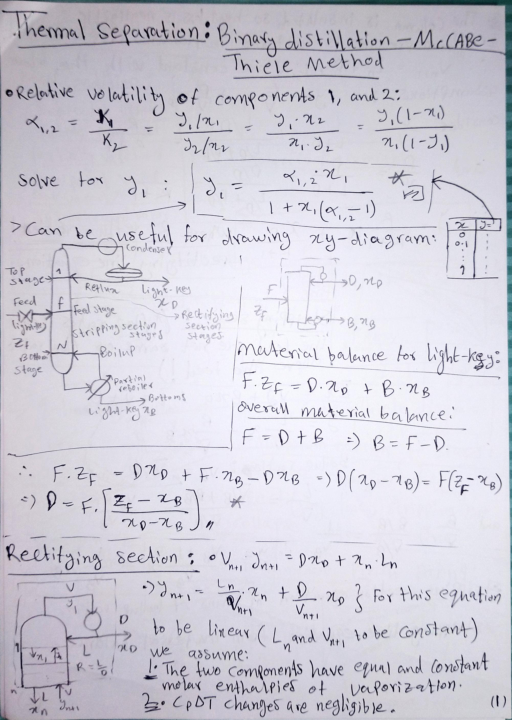 Thermal Separation: Binary distillation – McCABE-
Thiele Method
• Relative volatility of components 1, and 2:
α1,2 = K1/K2 = (y1/x1)/(y2/x2) = (y1·x2)/(x1·y2) = y1(1-x1)/x1(1-y1)
solve for y1 : y1 = α1,2·x1 / 1+x1(α1,2-1) *
> Can be useful for drawing xy-diagram:
x y=
0
0.1
1
condenser
Top stage
1
Reflux
Light-key
xD
Feed
f
feed stage
light-key
zF
→ Rectifying section stages
stripping section stages
N
Bottom stage
Boilup
Partial reboiler
→ Bottoms
Light-key xB
F
zF
D, xD
B, xB
material balance for light-key:
F·zF = D·xD + B·xB
overall material balance:
F = D + B => B = F-D.
∴ F·zF = DxD + F·xB - DxB => D(xD-xB) = F(zF-xB)
=> D = F·[zF - xB / xD - xB] *
Rectifying section : • Vn+1 yn+1 = DxD + xn·Ln
=> yn+1 = Ln/Vn+1 · xn + D/Vn+1 xD } For this equation
to be linear (Ln and Vn+1 to be constant)
we assume:
1: The two components have equal and constant
molar enthalpies of vaporization.
2. CpΔT changes are negligible.
V
y1
D
xD
L
R = L/D
1
n
L
xn
V
yn+1
(1)